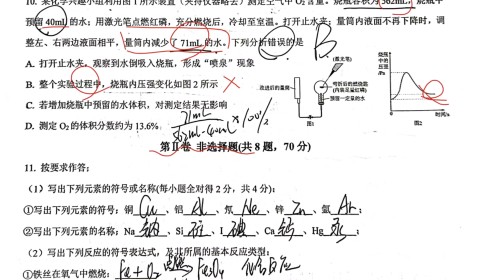 10. 某化学兴趣小组利用图1所示装置（夹持仪器略去）测定空气中O₂含量。烧瓶容积为362mL，烧瓶中
预留40mL的水；用激光笔点燃红磷，充分燃烧后，冷却至室温。打开止水夹；量筒内液面不再下降时，调
整左、右两边液面相平，量筒内减少了71mL的水。下列分析错误的是 B
A. 打开止水夹，观察到水倒吸入烧瓶，形成“喷泉”现象
B. 整个实验过程中，烧瓶内压强变化如图2所示 ×
C. 若增加烧瓶中预留的水体积，对测定结果无影响
D. 测定O₂的体积分数约为13.6% 71mL/362mL-40mL×100%
(激光笔)
改进后的量筒
(内装足量红磷)
预留一定量的水
图1
烧瓶中的压强
时间/s
图2
第Ⅱ卷 非选择题(共8题，70分)
11. 按要求作答：
（1）写出下列元素的符号或名称(每小题全对得2分，共4分)：
①写出下列元素的符号：铜 Cu 、铝 Al 、氖 Ne 、锌 Zn 、氩 Ar ；
②写出下列元素的名称；Na 钠 、Si 硅 、I 碘 、Ca 钙 、Hg 汞 ；
（2）写出下列反应的符号表达式，及其所属的基本反应类型：
①铁丝在氧气中燃烧：Fe+O₂ 点燃 Fe₃O₄